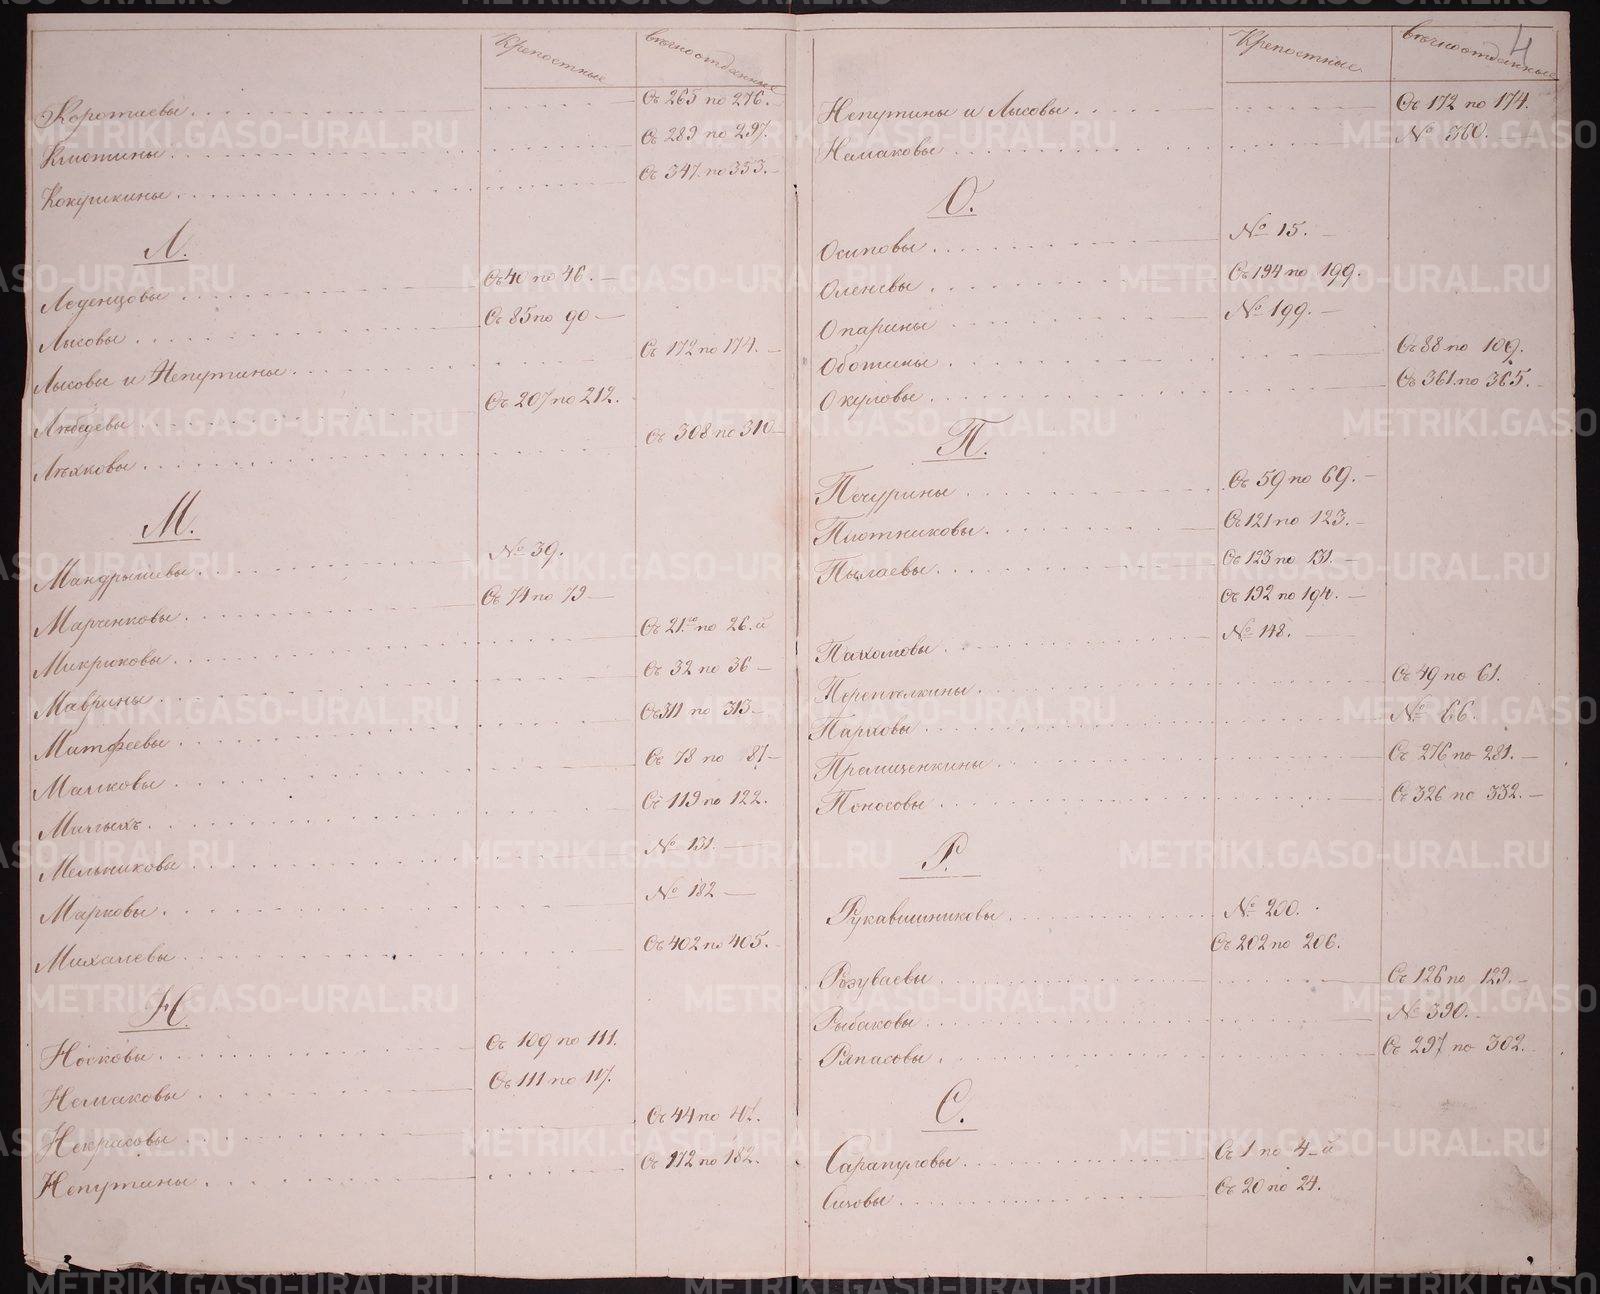 Крепостные вѣчноотданные
Коротаевы. Съ 265 по 276.
Клютины. Съ 289 по 297.
Кокушкины. Съ 347 по 353.
Л.
Леденцовы Съ 40 по 46.
Лысовы Съ 85 по 90
Лысовы и Непутины. Съ 172 по 174.
Лебедевы Съ 207 по 212.
Лѣхковы Съ 308 по 310
М.
Мандрыгины № 39.
Марченковы Съ 74 по 79
Микриковы Съ 21го по 26.й
Маврины Съ 32 по 36
Матфеевы Съ 311 по 313
Малковы Съ 78 по 87
Милыхъ. Съ 119 по 122.
Мельниковы № 131.
Марковы № 182
Михалевы Съ 402 по 405.
Н.
Носковы Съ 109 по 111.
Немаковы Съ 111 по 117.
Некрасовы Съ 44 по 47.
Непутины Съ 172 по 182.
Крепостные вѣчноотданные
4
Непутины и Лысовы. Съ 172 по 174.
Немаковы № 360.
О.
Осиповы № 15.
Оленевы Съ 194 по 199.
Опарины № 199.
Оботины Съ 88 по 109.
Окуловы Съ 361 по 365.
П.
Печурины Съ 59 по 69.
Плотниковы Съ 121 по 123.
Пылаевы Съ 123 по 131.
Съ 192 по 194.
Пахомовы № 148.
Перепелкины Съ 49 по 61.
Парховы № 66.
Прамиценкины Съ 276 по 281.
Поносовы Съ 326 по 332.
Р.
Рукавишниковы № 200.
Съ 202 по 206.
Розуваевы Съ 126 по 129.
Рыбаковы № 390.
Ряпасовы Съ 297 по 302.
С.
Сарапуловы Съ 1 по 4-й
Сизовы Съ 20 по 24.
METRIKI.GASO-URAL.RU